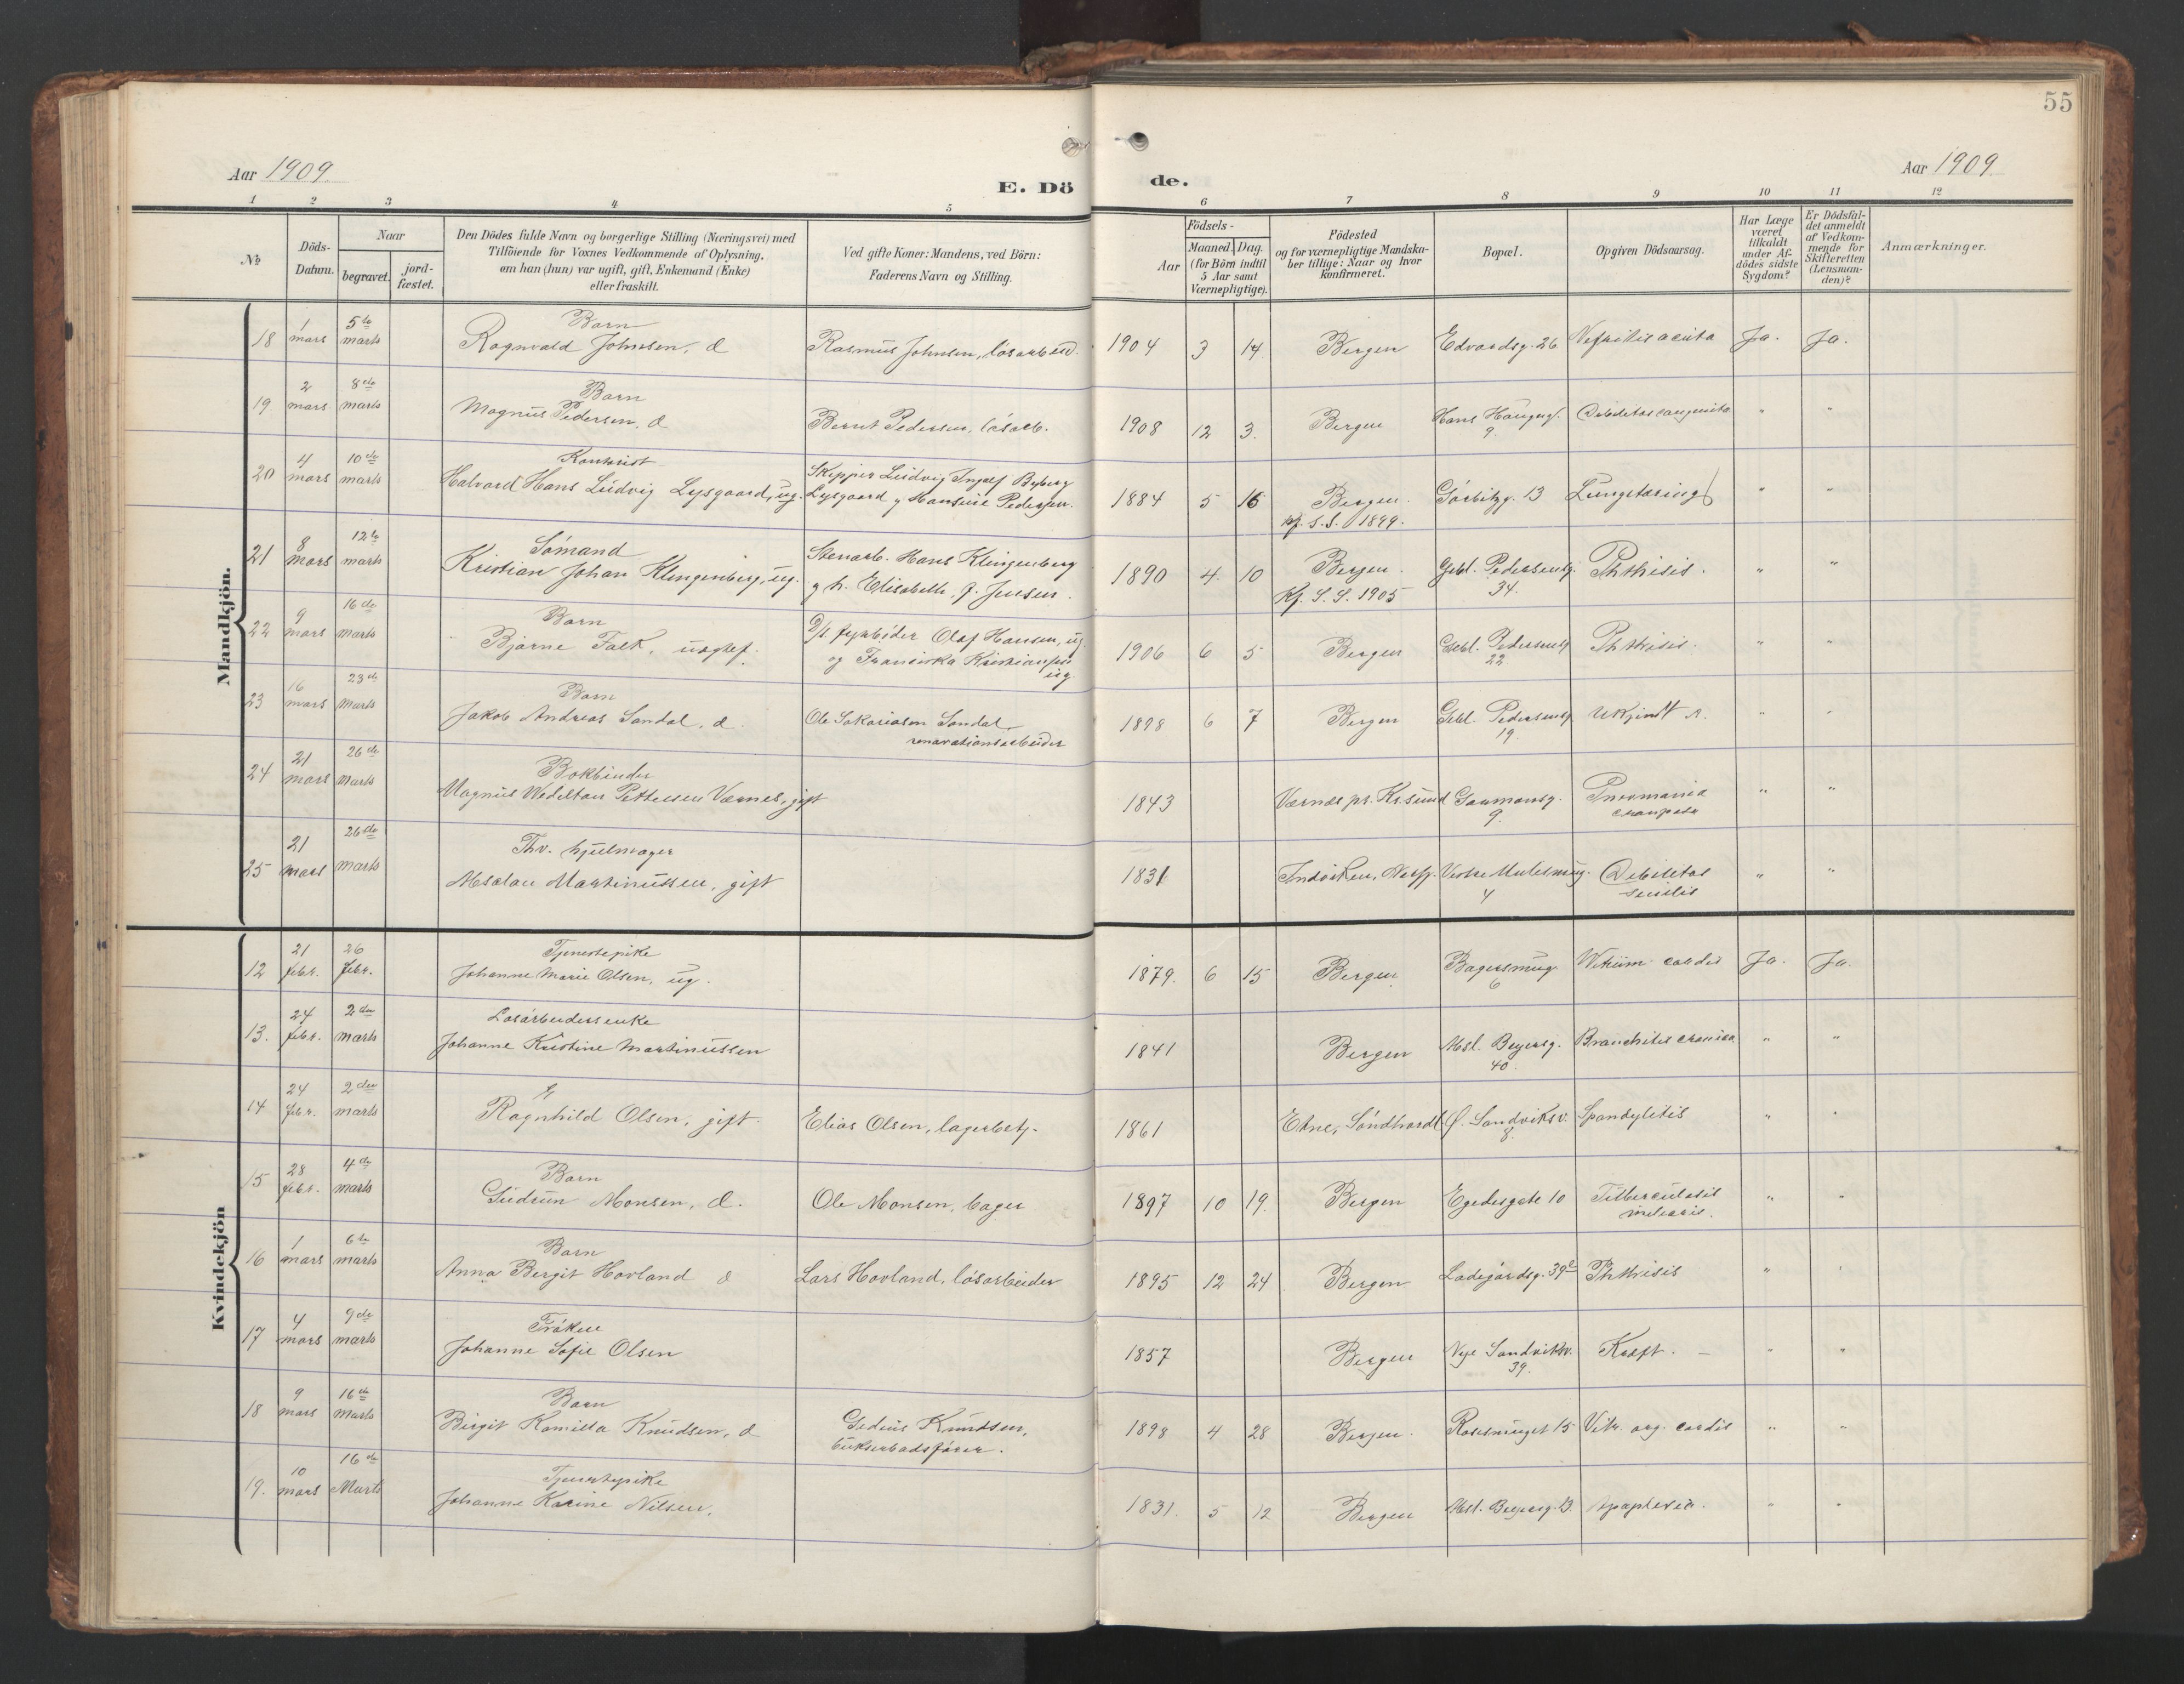 55
Aar 1909.
E. Dö
de.
Aar 1909
1 2 3 4 5 6 7 8 9 10 11 12
№
Döds-
Datum.
Naar
begravet.
jord-
fæstet.
Den Dödes fulde Navn og borgerlige Stilling (Næringsvei) med
Tilföiende for Voxnes Vedkommende af Oplysning,
om han (hun) var ugift, gift, Enkemand (Enke)
eller fraskilt.
Ved gifte Koner: Mandens, ved Börn:
Faderens Navn og Stilling.
Födsels-
Aar
Maaned. Dag.
(for Börn indtil
5 Aar samt
Værnepligtige).
Födested
og for værnepligtige Mandska-
ber tillige: Naar og hvor
konfirmeret.
Bopæl.
Opgiven Dödsaarsag.
Har Læge
været
tilkaldt
under Af-
dödes sidste
Sygdom?
Er Dödsfal-
det anmeldt
af Vedkom-
mende for
Skifteretten
(Lensman-
den)?
Anmærkninger.
Mandkjön.
18 1 mars 5te marts Barn
Ragnvald Johnsen, d Rasmus Johnsen, løsarbeid. 1904 3 14 Bergen Edvardsg. 26 Nefritis acuta Ja. Ja.
19 2 mars 8de marts Barn
Magnus Pedersen, d Bernt Pedersen, løsarb. 1908 12 3. Bergen Hans Haugesg. 9. Debilitas congenita " "
20 4 mars 10de marts Kontorist
Halvard Hans Ludvig Lysgaard, ug. Skipper Ludvig Ingolf Byberg
Lysgaard og Hansine Pedersen. 1884 5 16 Bergen.
kf. S.S. 1899. Gørbitzg. 13 Lungetæring " "
21 8 mars 12te marts Sømand
Kristian Johan Klingenberg, ug. Stenarb. Hans Klingenberg
og h. Elisabeth, f. Jensen. 1890 4. 10 Bergen.
Kf. S.S. 1905 Gebl. Pedersensg. 34. Phthisis. " "
22 9 mars 16de marts Barn
Bjarne Falk, uegtef. D/s fyrbøder Olaf Hansen, ug.
og Franciska Kristiansen
ug. 1906 6 5 Bergen Gebl. Pedersensg 22 Phthisis. " "
23 16 mars 23de marts Barn
Jakob Andreas Sandal, d. Ole Sakariasen Sandal
renovationsarbeider 1898 6 7 Bergen Gebl. Pedersensg. 19. Ukjendt " "
24 21 mars 26de marts Bokbinder
Magnus Pettersen Værnes, gift 1843 Værnes pr. Kr.sund 9. Pneumonia " "
25 21 mars 26de marts Thv. hjulmager
Absalon Martinussen, gift 1831 Indviken, Vestre 4 Debilitas
senilis " "
Kvindekjön
12 21 febr. 26 febr. Tjenestepike
Johanne Marie Olsen, ug. 1879. 6 15 Bergen. Bagersmug. 6 Vitium cordis Ja. Ja.
13. 24 febr. 2den marts Løsarbeidersenke
Johanne Kristine Martinussen 1841 Bergen Absl. Beyersg. 40. Bronchitis cronica " "
14 24 febr. 2den marts
Ragnhild Olsen, gift. Elias Olsen, lagerbetj. 1861 Etne, Søndhordl. Ø. Sandviksv. 8. Spondylitis " "
15 28 febr. 4de marts Barn
Gudrun Monsen, d. Ole Monsen, bager 1897 10 19. Bergen Egedesgate 10 Tuberculosis
miliaris. " "
16 1 mars 6te marts Barn
Anna Bergit Hovland d Lars Hovland, løsarbeider 1895 12 24 Bergen Ladegårdsg. 39 Phthisis " "
17 4 mars 9de marts Frøken
Johanne Sofie Olsen 1857 Bergen Nye Sandviksv. 39. Kræft. – " "
18 9 mars 16de marts Barn
Birgit Kamilla Knudsen, d Knudsen,
buksérbaadsfører. 1898 4 28 Bergen. Rosesmuget 15 Vit. org. cordis " "
19. 10 mars 16de Marts Tjenestepike
Johanne Karine Nilsen, 1831. 5 12 Bergen Absl. Beyersg. 13. Apoplexia. " "